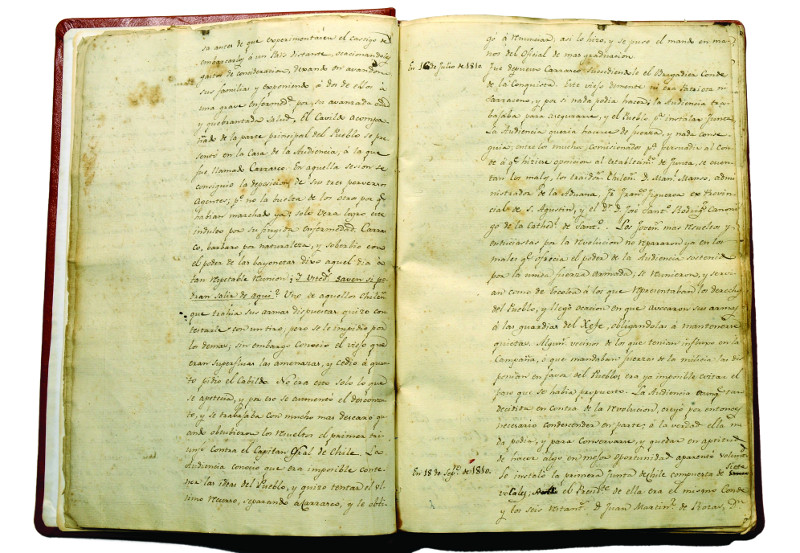 sa antes de que experimentasen el castigo de
embarcarlos á un País distante, ocasionandoles
gastos de consideracion, dexando en avandono
sus familias y exponiendo á dos de ellos á
una grave enfermedad por su avanzada edad
y quebrantada salud, el Cavildo acompa-
ñado de la parte principal del Pueblo se pre-
sentó en la Casa de la Audiencia, á la que
fue llamado Carrasco. En aquella sesion se
consiguió la deposicion de sus tres perversos
Agentes; pero no la buelta de los otros por q.
habian marchado ya: solo Vera logró este
indulto por su fingida enfermedad. Carras-
co, barbaro por naturaleza, y soberbio con
el poder de las bayonetas dixo aquel dia á
tan respetable reunion: ¿Y Vmds. saven si po-
dran salir de aqui? Uno de aquellos Chilen.s
que trahia sus armas dispuestas quizo con-
textarle con un tiro; pero se lo impidio por
los demas; sin embargo conocio el viejo que
eran superfluas las amenazas, y cedió á quan-
to pidió el Cabildo. No era esto solo lo que
se apetecia, y por eso se aumentó el descon-
to, y se trabajaba con mucho mas descaro qu-
ando obtubieron los revueltos el primer tri-
unfo contra el Capitan Gral de Chile. La
Audiencia conocio que era imposible conte-
ner las ideas del Pueblo, y quizo tentar el ul-
timo recurso, separando á Carrasco, y le obli-
gó á renunciar, asi lo hizo, y se puso el mando en ma-
nos del Oficial de mas graduacion.
En 16 de Julio de 1810.
Fué depuesto Carrasco sucediendole el Brigadier Conde
de la Conquista. Este viejo demente no era Catalan ni
Sarraceno, y por si nada podia hacer; la Audiencia tra-
bajaba para asegurarse, y el Pueblo p.r instalar Junta.
La Audiencia queria hacerse de fuerza, y nada conse-
guia; entre los muchos comisionados p.a persuadir al Con-
de á q.e hiziese oposicion al establecim.to de Junta, se cuen-
tan los malos, los traidor.s Chilen.s D. Man.l Manso, admi-
nistrador de la Aduana, Fr. Franc.o Figueroa ex Provin-
cial de S. Agustin, y el D.r D. José Sant.o Rodrig.z Canoni-
go de la Cathed.l de Sant.o. Los Joven.s mas resueltos y
entusiastas por la revolucion no repararon ya en los
males q.e ofrecia el poder de la Audiencia sostenido
por la unica fuerza armada, se reunieron, y servi-
an como de Escolta á los que representaban los derechos
del Pueblo, y llegó ocacion en que asestaron sus armas
á las guardias del Xefe, obligandolas á mantenerse
quietas. Algun.s vecinos de los que tenian influxo en la
Campaña, ó que mandaban fuerzas de la milicia las dis-
ponian en favor del Pueblo; era ya imposible evitar el
paso que se habia propuesto. La Audiencia aunq.e tan
decidida en contra de la revolucion, creyó por entonces
necesario condescender en parte; á la verdad ella na-
da podia, y para conservarse, y quedar en aptitud
de hacer algo en mejor oportunidad aparentó voluntad.
En 18 de Sep.re de 1810.
Se instaló la primera Junta de Chile compuesta de siete
vocales; el Presid.te de ella era el mismo Conde
y los seis restant.s D. Juan Martin.z de Rozas, D.n